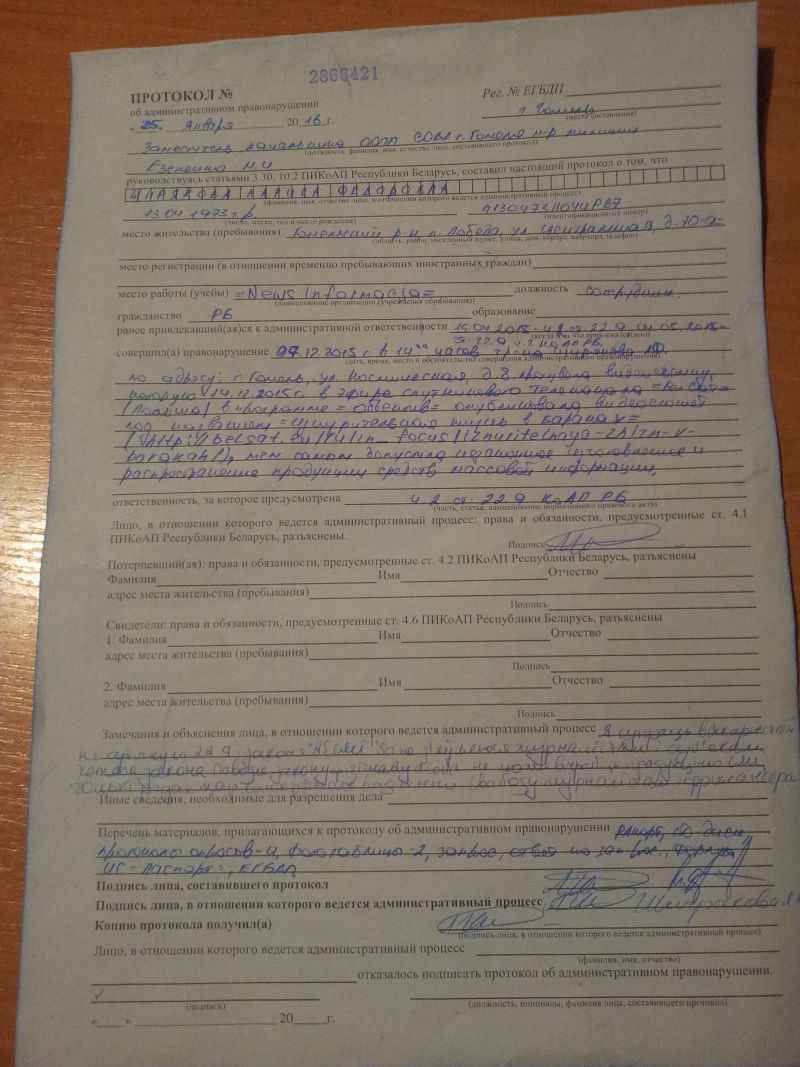 2866421
ПРОТОКОЛ №
Рег. № ЕГБДП
об административном правонарушении
г. Гомель
(место составления)
„25“ января 2016 г.
Заместитель начальника ООПП СОВД г. Гомеля м-р милиции
(должность, фамилия, имя, отчество лица, составившего протокол)
Езепенко Н.И
руководствуясь статьями 3.30, 10.2 ПИКоАП Республики Беларусь, составил настоящий протокол о том, что
(фамилия, имя, отчество лица, в отношении которого ведется административный процесс)
13.04.1973 г/р
(число, месяц, год и место рождения)
(идентификационный номер)
место жительства (пребывания) Гомельский р-н п. Победа, ул Центральная, д.
(область, район, населенный пункт, улица, дом, корпус, квартира, телефон)
место регистрации (в отношении временно пребывающих иностранных граждан)
место работы (учебы) =News Informacia= должность сотрудник
(наименование организации (учреждения образования))
гражданство РБ образование
ранее привлекавший(ая)ся к административной ответственности 15.04.2015 - ч.2 ст.22.9, 04.05.2015-
(когда и за что привлекался(лась))
ст-22.9, ч.2 КоАП РБ,
совершил(а) правонарушение 07.12.2015 г в 14⁰⁰ часов гр-ка
(дата, время, место и обстоятельства совершения административного правонарушения)
по адресу: г. Гомель, ул. Космическая, д.8 провела видеосъемку,
которую 19.12.2015г. в эфире спутникового телеканала =БелСат=
(Польша) в программе =Объектив= опубликовала видеосюжет
под названием =Изнурительная жизнь в бараках=
(http://belsat.eu/ru/in_focus/iznuritelnaya-zhizn-v-
barakah/), тем самым допустила незаконное изготовление и
распространение продукции средств массовой информации,
ответственность, за которое предусмотрена ч.2 ст-22.9 КоАП РБ
(часть, статья, наименование нормативного правового акта)
Лицо, в отношении которого ведется административный процесс: права и обязанности, предусмотренные ст. 4.1
ПИКоАП Республики Беларусь, разъяснены.
Подпись
Потерпевший(ая): права и обязанности, предусмотренные ст. 4.2 ПИКоАП Республики Беларусь, разъяснены
Фамилия Имя Отчество
адрес места жительства (пребывания)
Подпись
Свидетели: права и обязанности, предусмотренные ст. 4.6 ПИКоАП Республики Беларусь, разъяснены
1. Фамилия Имя Отчество
адрес места жительства (пребывания)
Подпись
2. Фамилия Имя Отчество
адрес места жительства (пребывания)
Подпись
Замечания и объяснения лица, в отношении которого ведется административный процесс Я
Иные сведения, необходимые для разрешения дела
Перечень материалов, прилагающихся к протоколу об административном правонарушении рапорт, CD-диск,
протоколы опросов-4, фототаблицы-2, запрос, ответ на запрос, форма
ИС =Паспорт=, ЕГБДП
Подпись лица, составившего протокол
Подпись лица, в отношении которого ведется административный процесс
Копию протокола получил(а)
(подпись лица, в отношении которого ведется административный процесс)
Лицо, в отношении которого ведется административный процесс
(фамилия, имя, отчество)
отказалось подписать протокол об административном правонарушении.
(подпись)
(должность, инициалы, фамилия лица, составившего протокол)
«____» 20____г.